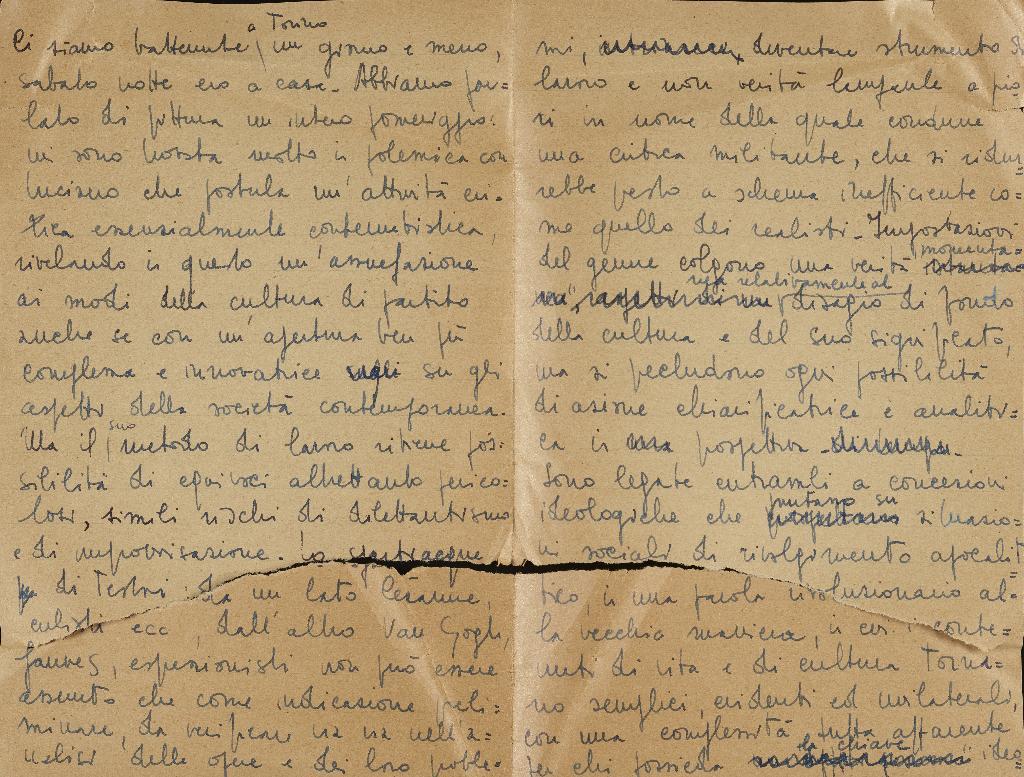 a Torino
Ci siamo trattenute un giorno e meno,
sabato notte ero a casa. Abbiamo par=
lato di pittura un intero pomeriggio:
mi sono trovata molto in polemica con
Luciano che postula un'attività cri=
tica essenzialmente contenutistica,
rivelando in questo un'assuefazione
ai modi della cultura di partito
anche se con un'apertura ben più
complessa e innovatrice sugli su gli
aspetti della società contemporanea.
Ma il suo metodo di lavoro ritiene pos=
sibilità di equivoci altrettanto perico=
losi, simili rischi di dilettantismo
e di improvvisazione. Lo spartiacque
di Testori da un lato Cézanne,
cubisti ecc, dall'altro Van Gogh,
fauves, espressionisti non può essere
assunto che come indicazione preli=
minare, da verificare via via nell'a=
nalisi delle opere e dei loro proble=
mi, diventare strumento di
lavoro e non verità lampante a prio
ri in nome della quale condurre
una critica militante, che si ridur=
rebbe presto a schema inefficiente co=
me quello dei realisti. Impostazioni
del genere colgono una verità momenta=
relativamente al disagio di fondo
della cultura e del suo significato,
ma si precludono ogni possibilità
di azione chiarificatrice e analiti=
ca in prospettiva.
Sono legate entrambi a concezioni
ideologiche che puntano su situazio=
ni sociali di rivolgimento apocalit
tico, in una parola rivoluzionario al=
la vecchia maniera, in cui i conte=
nuti di vita e di cultura torna=
no semplici, evidenti ed unilaterali,
con una complessità tutta apparente
per chi possieda la chiave ideo=